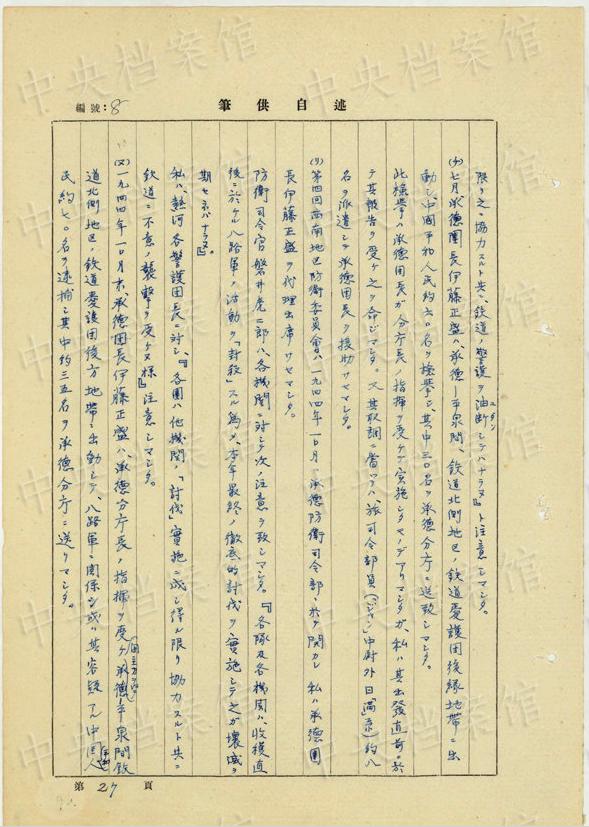 述自供筆
編號:8
限リ之ニ協力スルト共ニ、鉄道ノ警護ヲ油断シテハナラヌ』ト注意シマシタ。
ユダン
(チ)七月承德團長伊藤正盛ハ、承德—平泉間、鉄道北側地区ノ鉄道愛護団後緣地帶ニ出
動シ、中國平和人民約六〇名ヲ檢挙シ、其中三〇名ヲ承德分庁ニ送致シマシタ。
此檢挙ハ承德団長ガ分庁長ノ指揮ヲ受ケテ実施シタモノデアリマスガ、私ハ其出發直前ニ於
テ其報告ヲ受ケ之ヲ命ジマシタ。又其取調ニ當ッテハ、旅司令部員 中尉外日「滿」系約八
名ヲ派遣シテ承德団長ヲ援助サセマシタ。
(リ)第四回西南地区防衛委員會ハ一九四四年一〇月、承德防衛司令部ニ於テ開カレ 私ハ承德團
長伊藤正盛ヲ代理出席サセマシタ。
防衛司令官磐井虎二郎ハ、各機関ニ対シテ次ノ注意ヲ致シマシタ。『各隊及各機関ハ、收穫直
後ニ於ケル八路軍ノ活動ヲ「封殺」スル為メ、本年最終ノ徹底的討伐ヲ実施シテ之ガ壊滅ヲ
期セネバナラヌ』。
私ハ、熱河各警護団長ニ対シ、『各團ハ他機関ノ「討伐」実施ニ成シ得ル限リ協力スルト共ニ
鉄道ニ不意ノ襲撃ヲ受ケヌ様』注意シマシタ。
(ヌ)一九四四年一〇月末、承德団長伊藤正盛ハ、承德分庁長ノ指揮ヲ受ケ 承德—平泉間鉄
道北側地区ノ鉄道愛護団後方地帶ニ出動シテ、八路軍ニ関係シ或ハ其容疑アル中国人
民約七〇名ヲ逮捕シ其中約三五名ヲ承德分庁ニ送リマシタ。
第27頁
中央档案馆